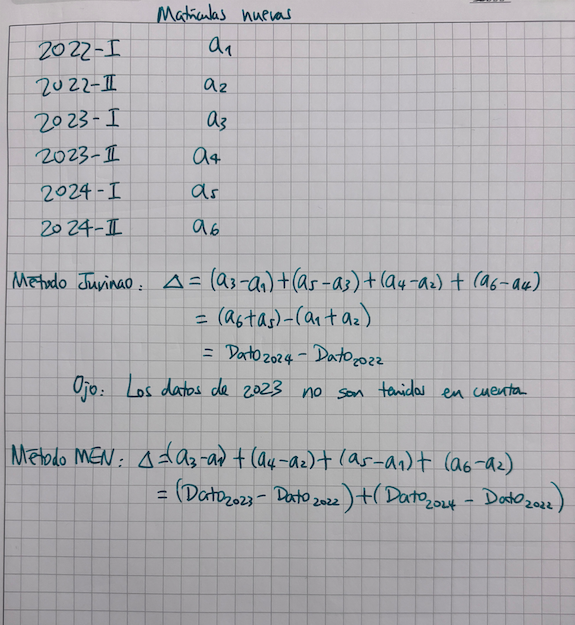 Matrículas nuevas
2022-I a₁
2022-II a₂
2023-I a₃
2023-II a₄
2024-I a₅
2024-II a₆
Método Jurinao: Δ = (a₃-a₁)+(a₅-a₃)+(a₄-a₂)+(a₆-a₄)
= (a₆+a₅)-(a₁+a₂)
= Dato₂₀₂₄ - Dato₂₀₂₂
Ojo: Los datos de 2023 no son tenidos en cuenta
Método MEN: Δ=(a₃-a₁)+(a₄-a₂)+(a₅-a₁)+(a₆-a₂)
= (Dato₂₀₂₃ - Dato₂₀₂₂)+(Dato₂₀₂₄ - Dato₂₀₂₂)